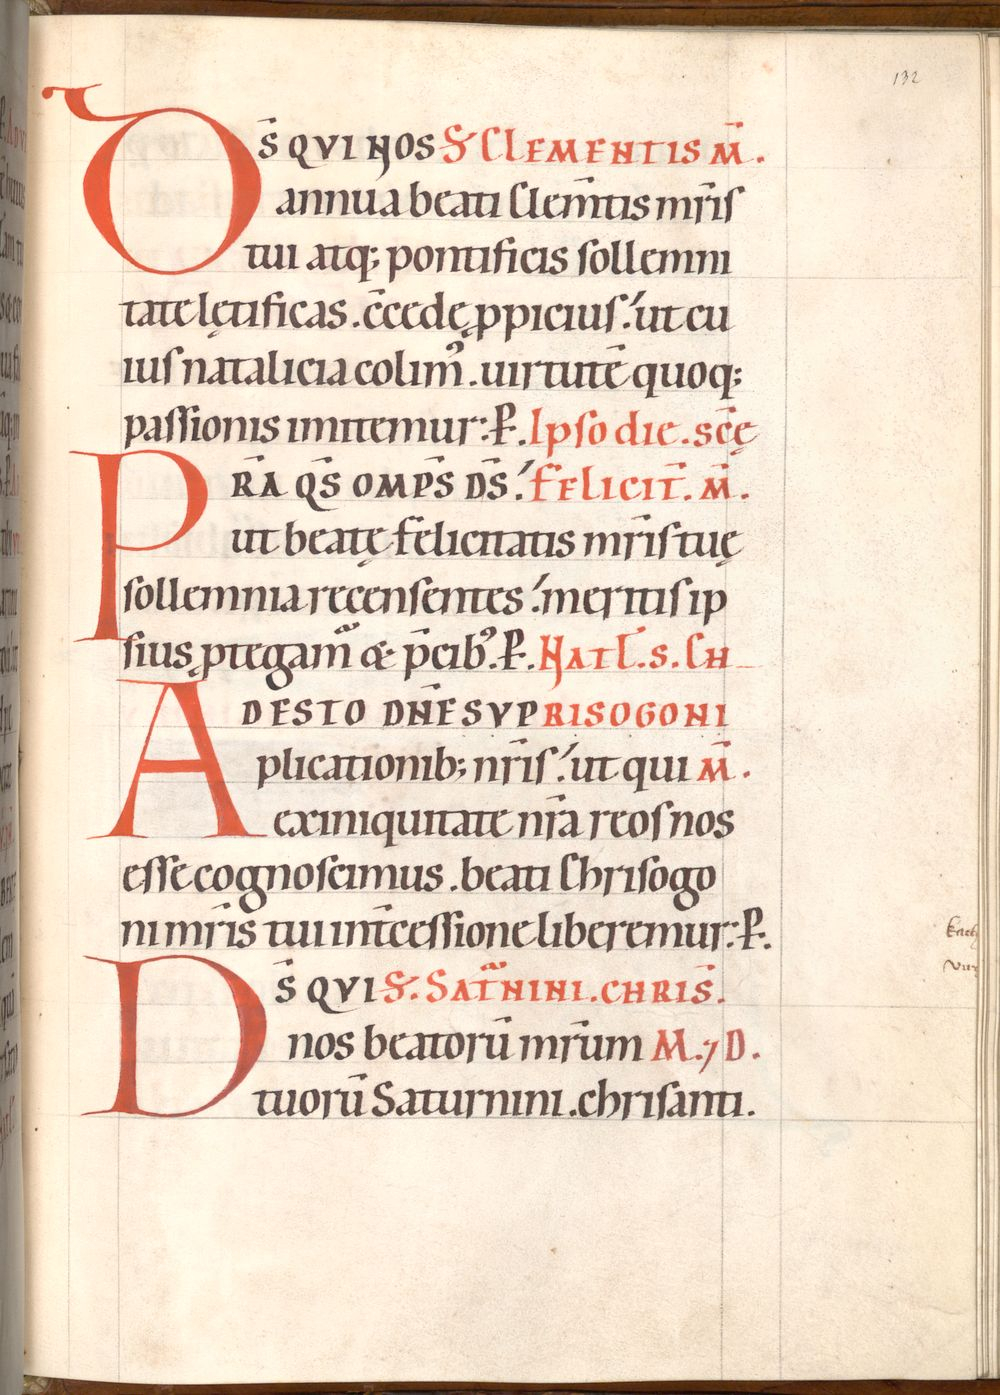 132
Ds̄ QVI NOS S. CLEMENTIS M̄.
annua beati Clem̄tis mr̄is
tui atq; pontificis sollemni
tate lętificas. c̄cede ꝓpicius.' ut cu
ius natalicia colim᾽. uirtutē quoq;
passionis imitemur:. P̱. Ipso die. sc̄ę
PRĀ QS̄ OMPS̄ DS̄.' FELICIT̄. M̄.
ut beatę felicitatis mr̄is tuę
sollemnia recensentes.' meritis ip
sius ꝓtegamur & p̄cib᾽. P̱. NATL̄. S. CH
ADESTO DN̄E SVP RISOGONI
plicationib; nr̄is.' ut qui M̄.
ex iniquitate nr̄a reos nos
esse cognoscimus. beati Chrisogo
ni mr̄is tui int̄cessione liberemur:. P̱.
DS̄ QVI S. SAT̄NINI. CHRIS̄.
nos beatorū mr̄um M. ⁊ D.
tuorū Saturnini. chrisanti.